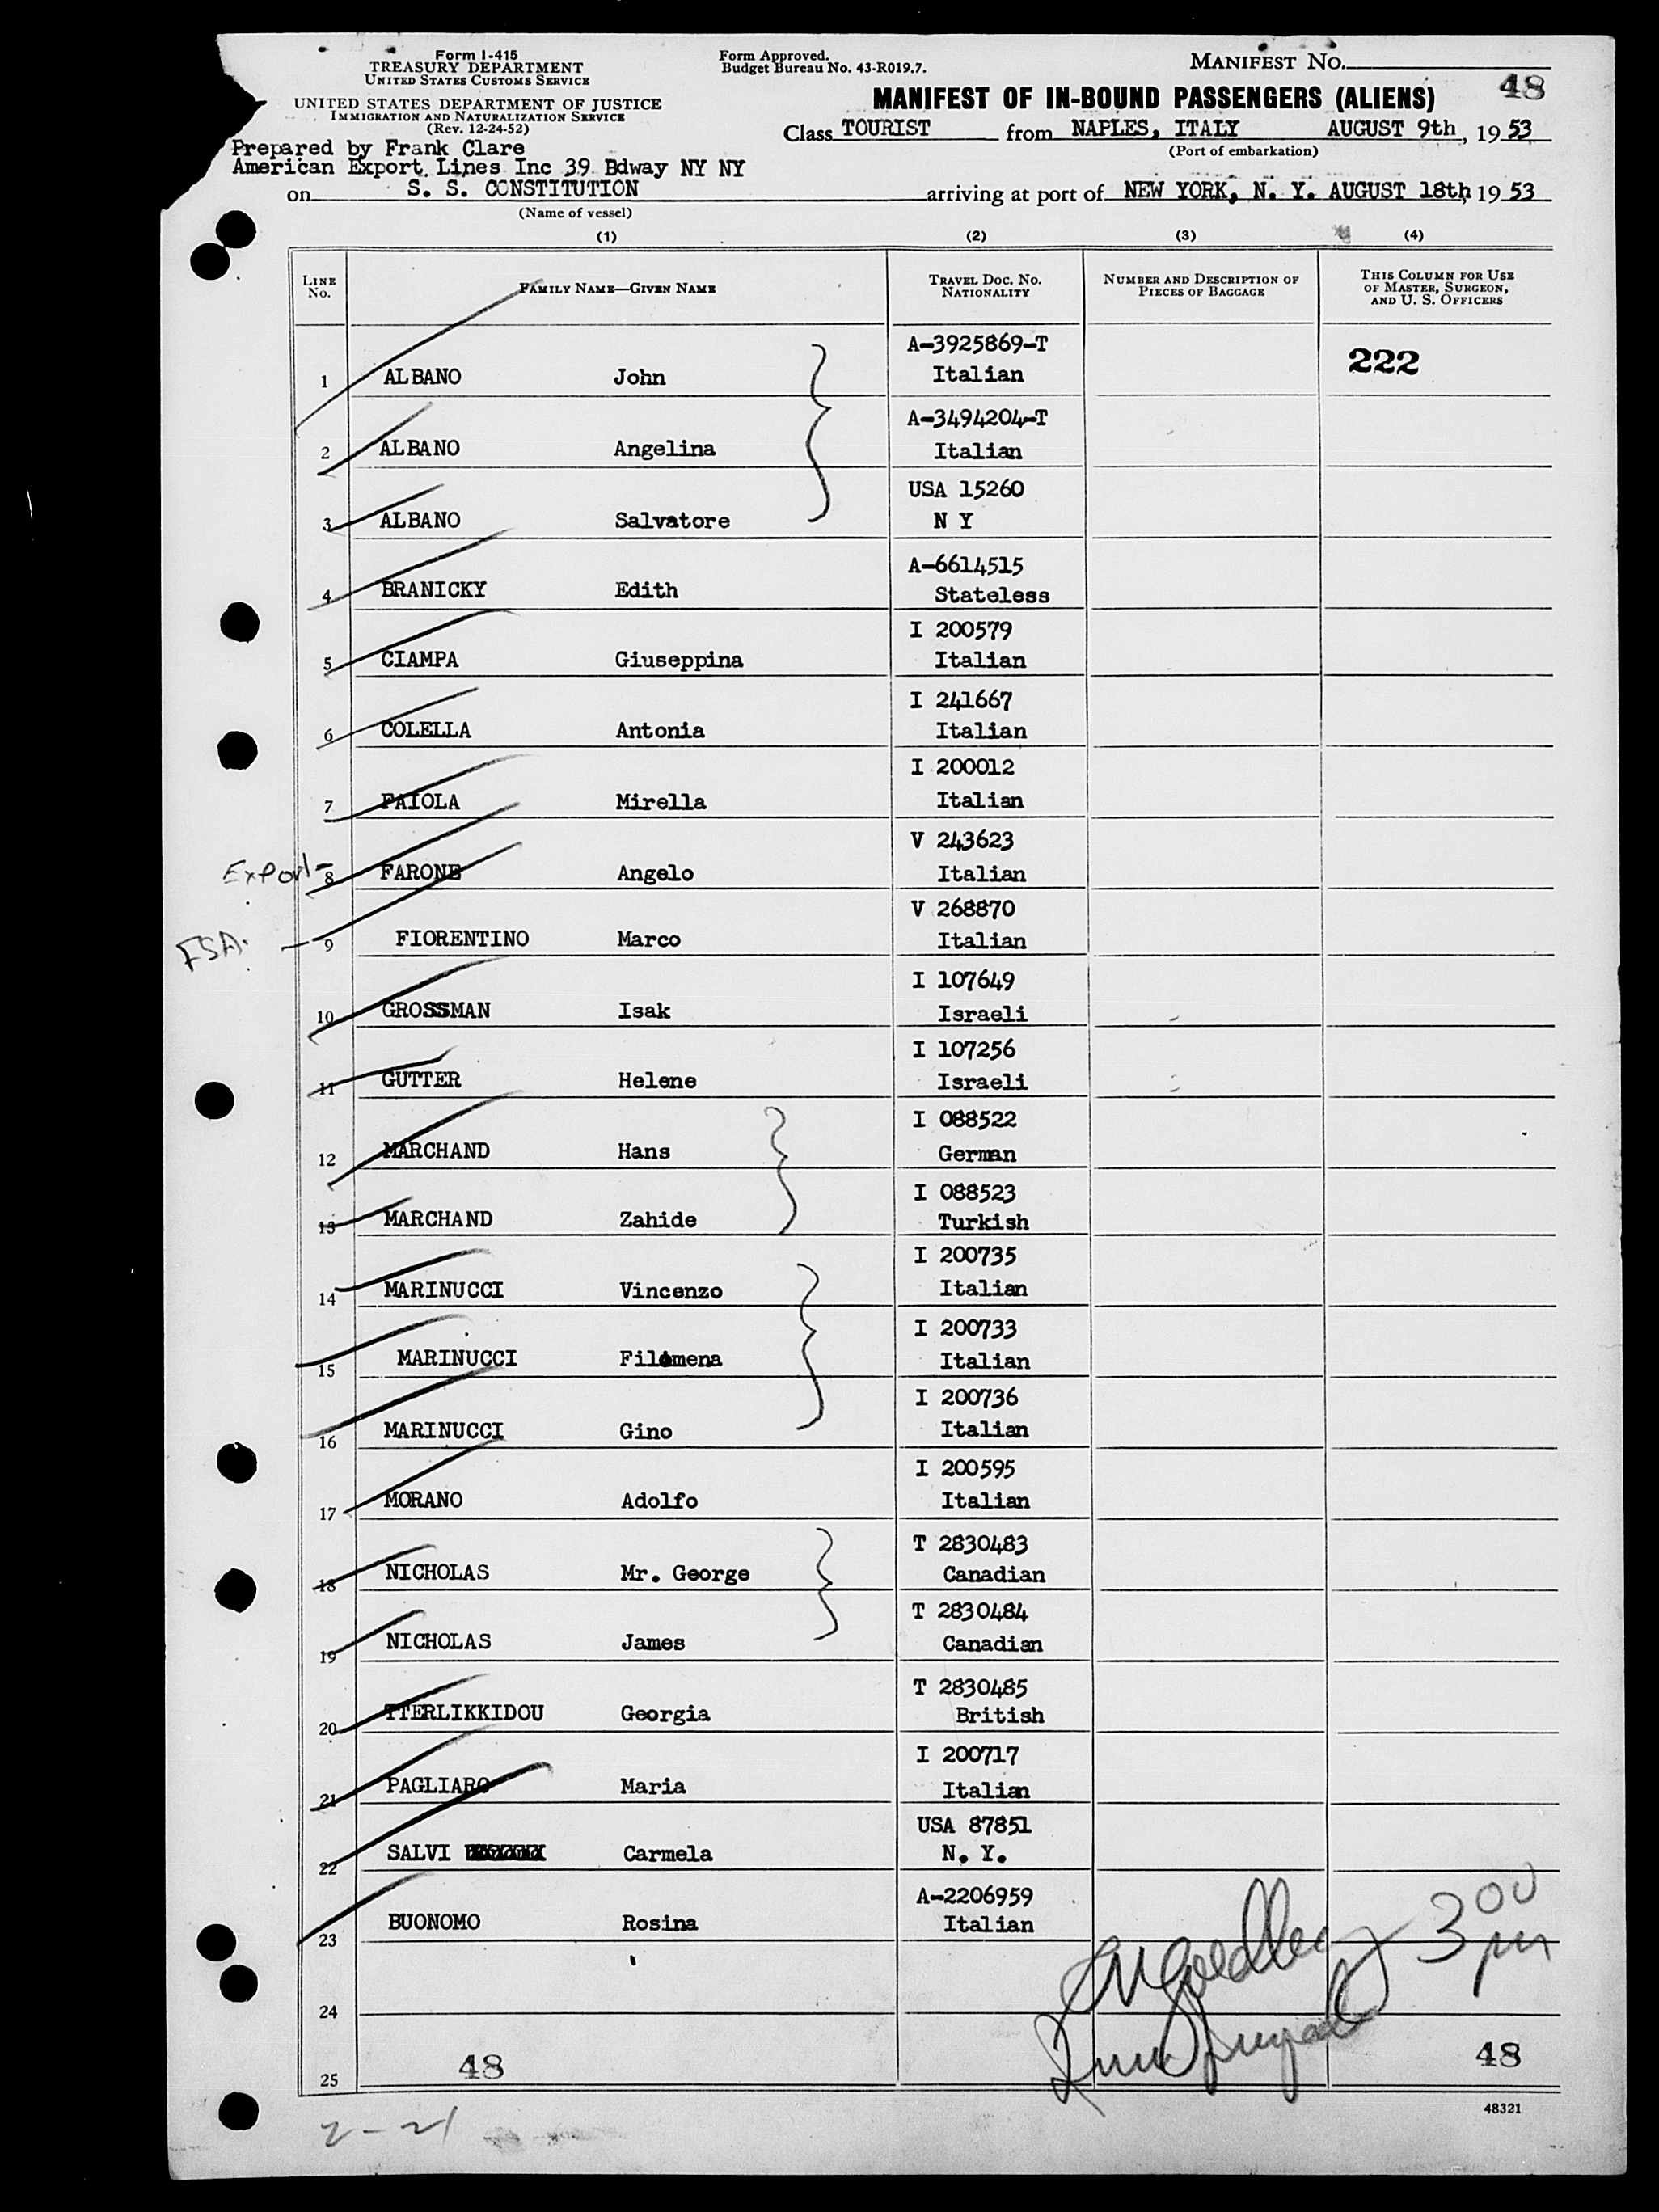 Form I-415
TREASURY DEPARTMENT
UNITED STATES CUSTOMS SERVICE
UNITED STATES DEPARTMENT OF JUSTICE
IMMIGRATION AND NATURALIZATION SERVICE
(Rev. 12-24-52)
Form Approved.
Budget Bureau No. 43-R019.7.
MANIFEST NO.
48
MANIFEST OF IN-BOUND PASSENGERS (ALIENS)
Class TOURIST from NAPLES, ITALY AUGUST 9th, 1953
(Port of embarkation)
Prepared by Frank Clare
American Export Lines Inc 39 Bdway NY NY
on S. S. CONSTITUTION arriving at port of NEW YORK, N. Y. AUGUST 18th, 1953
(Name of vessel)
(1) (2) (3) (4)
LINE No. FAMILY NAME—GIVEN NAME TRAVEL DOC. NO. NATIONALITY NUMBER AND DESCRIPTION OF PIECES OF BAGGAGE THIS COLUMN FOR USE OF MASTER, SURGEON, AND U. S. OFFICERS
A-3925869-T 222
1 ALBANO John Italian
A-3494204-T
2 ALBANO Angelina Italian
USA 15260
3 ALBANO Salvatore N Y
A-6614515
4 BRANICKY Edith Stateless
I 200579
5 CIAMPA Giuseppina Italian
I 241667
6 COLELLA Antonia Italian
I 200012
7 FAIOLA Mirella Italian
V 243623
Export- 8 FARONE Angelo Italian
V 268870
FSA. 9 FIORENTINO Marco Italian
I 107649
10 GROSSMAN Isak Israeli
I 107256
11 GUTTER Helene Israeli
I 088522
12 MARCHAND Hans German
I 088523
13 MARCHAND Zahide Turkish
I 200735
14 MARINUCCI Vincenzo Italian
I 200733
15 MARINUCCI Filomena Italian
I 200736
16 MARINUCCI Gino Italian
I 200595
17 MORANO Adolfo Italian
T 2830483
18 NICHOLAS Mr. George Canadian
T 2830484
19 NICHOLAS James Canadian
T 2830485
20 TTERLIKKIDOU Georgia British
I 200717
21 PAGLIARO Maria Italian
USA 87851
22 SALVI Carmela N. Y.
A-2206959
23 BUONOMO Rosina Italian
3 00 pm
24
25
48 48
48321
2-21